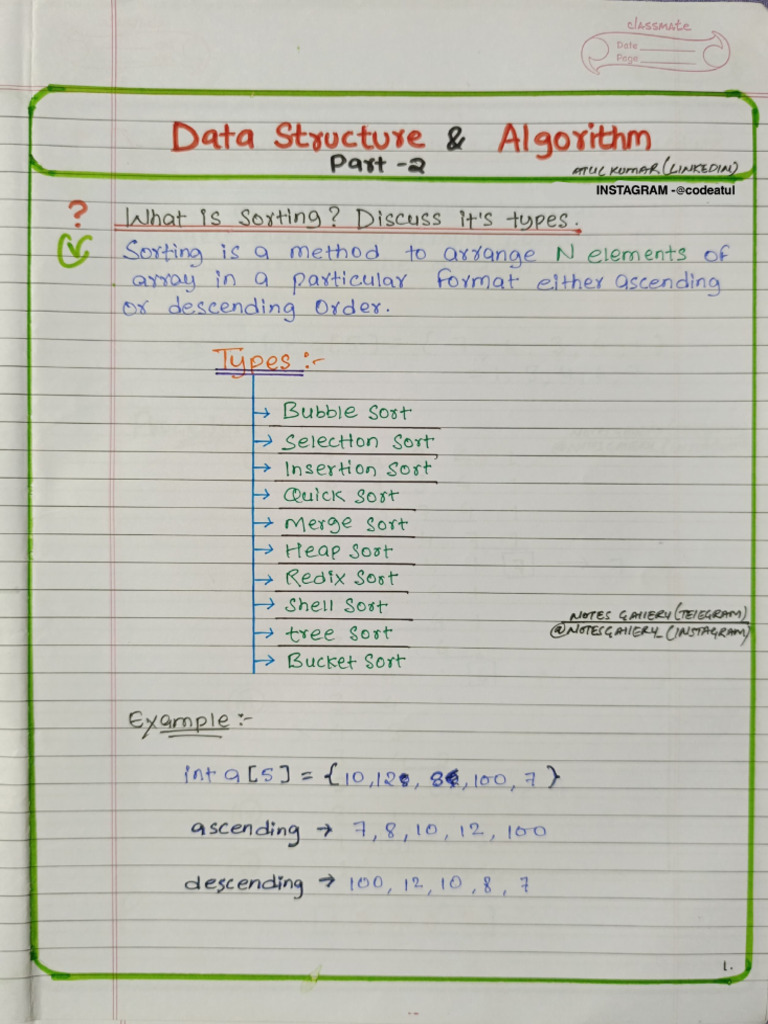 classmate
Date
Page
Data Structure & Algorithm
Part -2
ATUL KUMAR (LINKEDIN)
INSTAGRAM -@codeatul
? What is Sorting? Discuss it's types.
Sorting is a method to arrange N elements of
array in a particular format either ascending
or descending Order.
Types :-
→ Bubble Sort
→ Selection Sort
→ Insertion Sort
→ Quick Sort
→ Merge Sort
→ Heap Sort
→ Redix Sort
→ Shell Sort
→ tree Sort
→ Bucket Sort
NOTES GALLERY (TELEGRAM)
@NOTESGALLERY_(INSTAGRAM)
Example :-
int a[5] = {10, 12, 8, 100, 7}
ascending → 7, 8, 10, 12, 100
descending → 100, 12, 10, 8, 7
1.